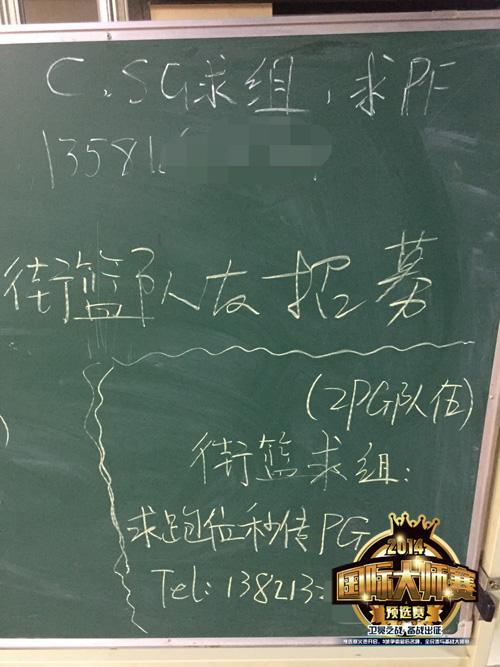 C、SG求组,求PF
13581
街篮队友招募
(2PG队伍)
街篮求组:
求跑位秒传PG
Tel: 138213
2014
国际大师赛
预选赛
卫冕之战 备战出征